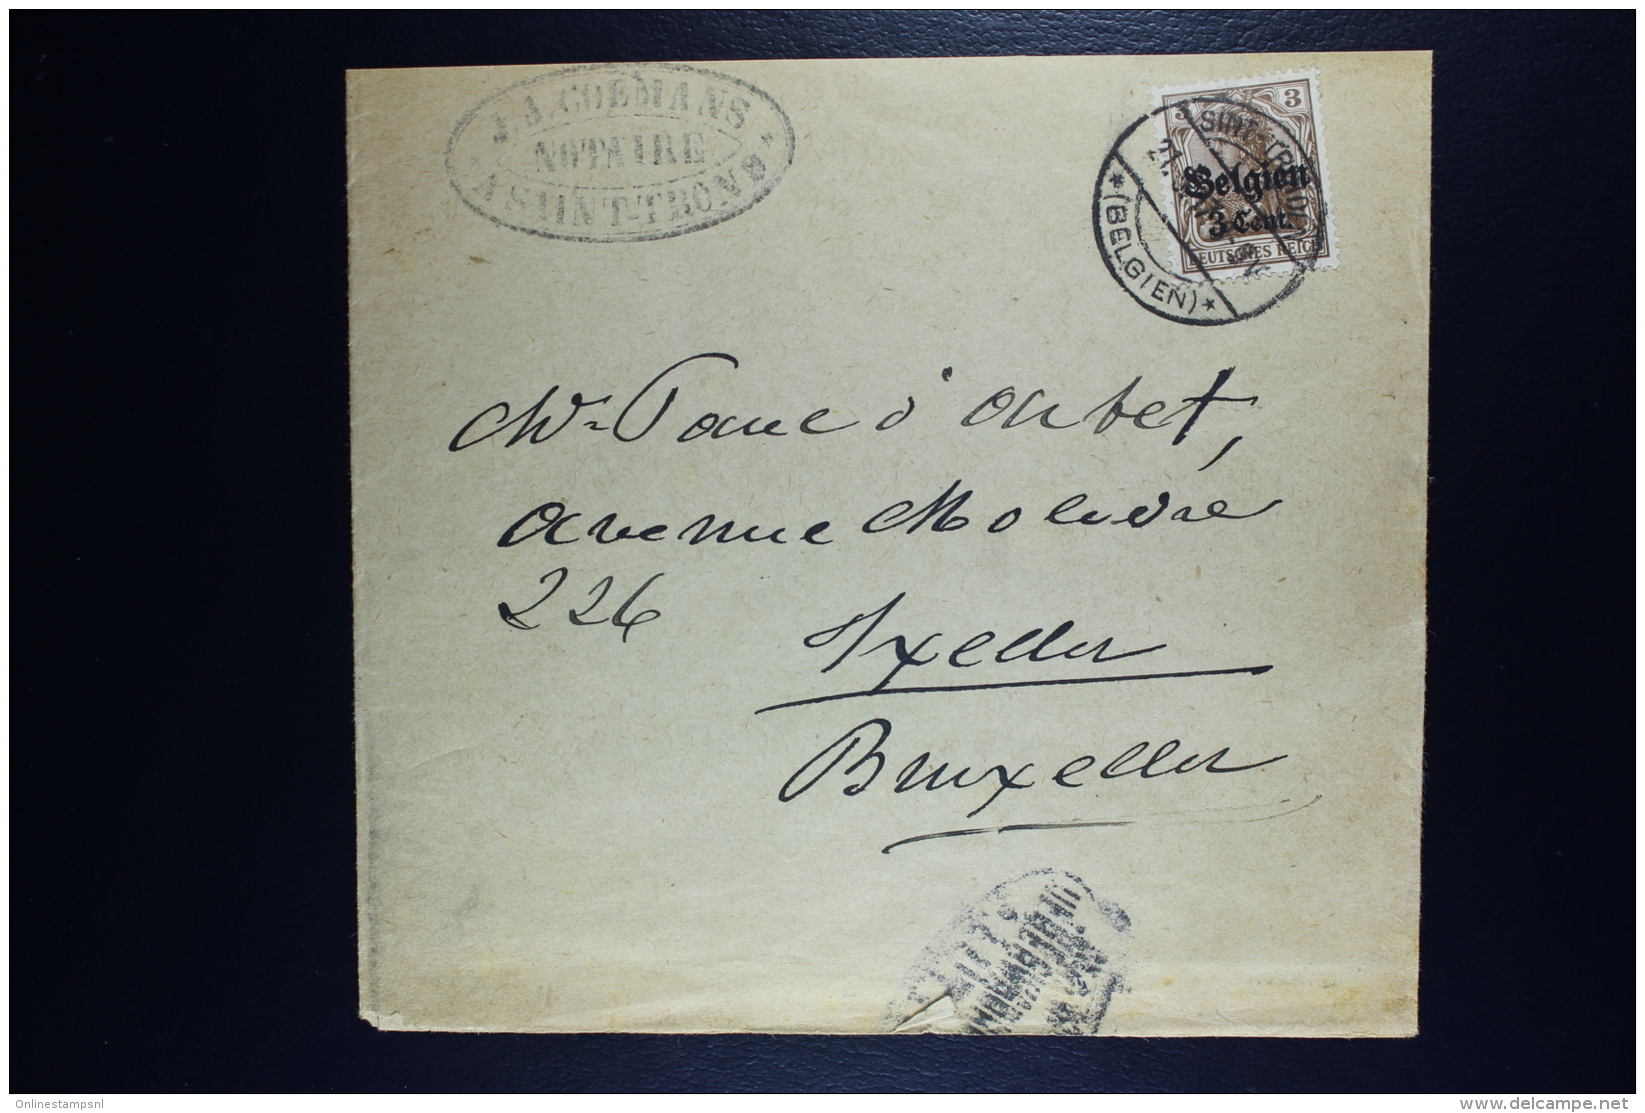 J.A.GOEMANS
NOTAIRE
A SAINT-TROND
3 3
Belgien
3 Cent.
DEUTSCHES REICH
SINT-TRUIDEN
21.
(BELGIEN)
Mr d'
avenue Molière
226
Ixelles
Bruxelles
Onlinestampsnl
delcampe.net